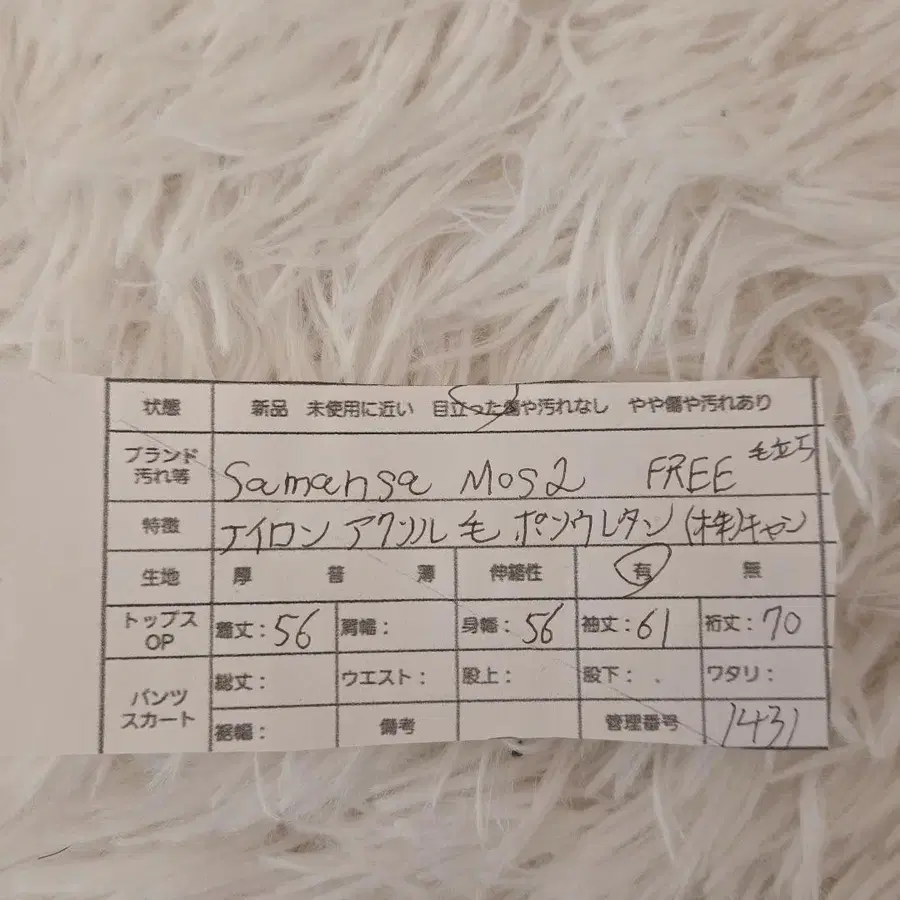 状態 新品 未使用に近い 目立った傷や汚れなし やや傷や汚れあり
ブランド
汚れ等 Samansa Mos2 FREE 毛立ち
特徴 ナイロン アクリル 毛 ポリウレタン (株)キャン
生地 厚 普 薄 伸縮性 有 無
トップス
OP 着丈:56 肩幅: 身幅:56 袖丈:61 裄丈:70
パンツ
スカート 総丈: ウエスト: 股上: 股下: ワタリ:
裾幅: 備考 管理番号 1431